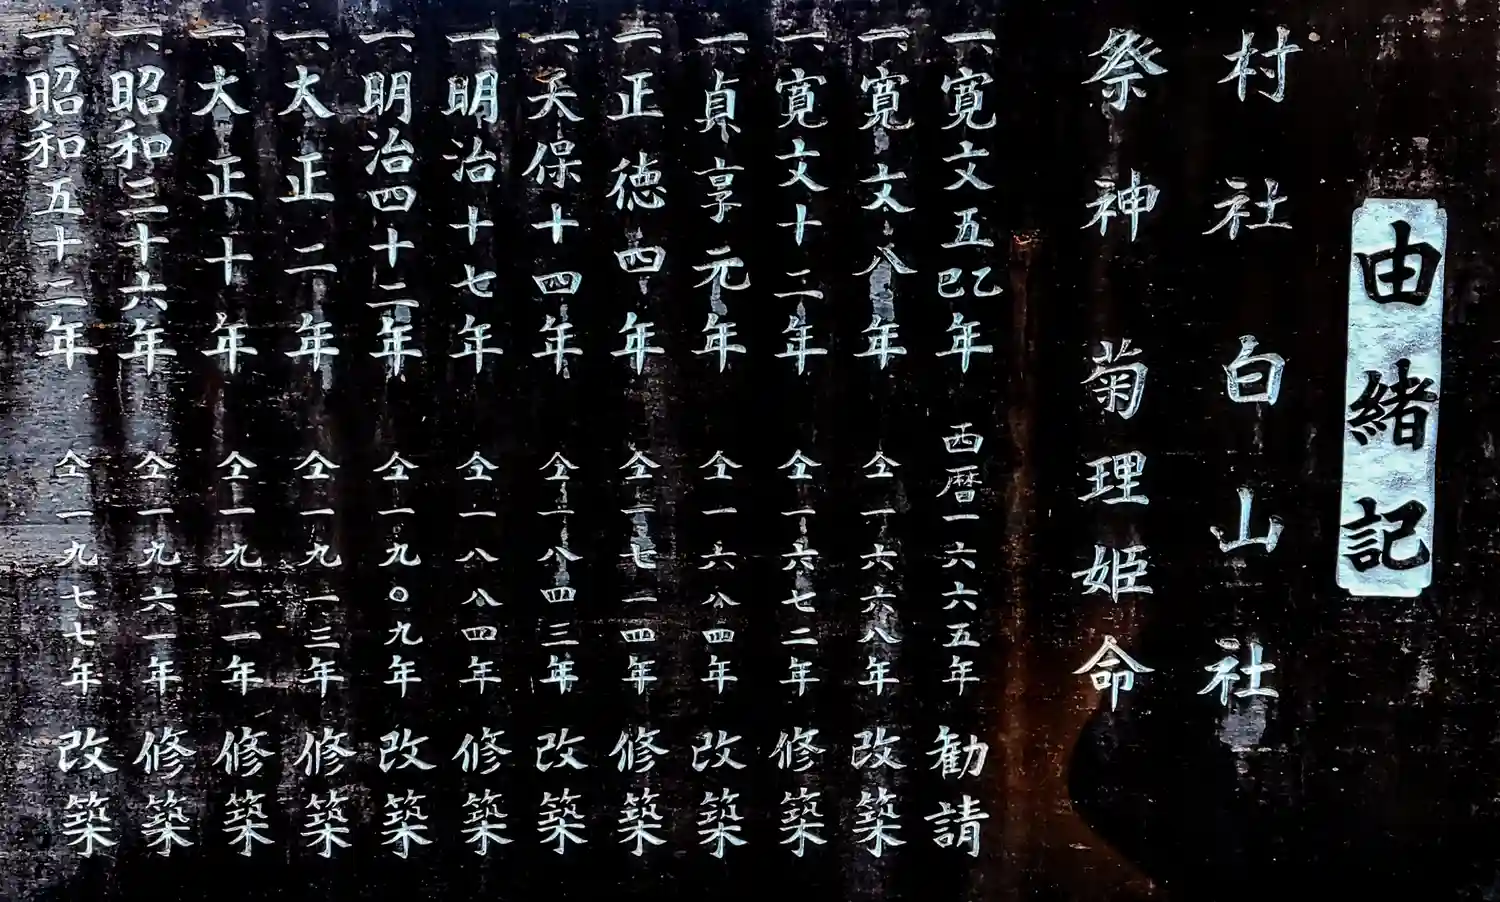 由緒記
村社白山社
祭神 菊理姫命
一、寛文五乙巳年 西暦一六六五年 勧請
一、寛文八年 仝一六六八年 改築
一、寛文十二年 仝一六七二年 修築
一、貞享元年 仝一六八四年 改築
一、正徳四年 仝一七一四年 修築
一、天保十四年 仝一八四三年 改築
一、明治十七年 仝一八八四年 修築
一、明治四十二年 仝一九〇九年 改築
一、大正二年 仝一九一三年 修築
一、大正十年 仝一九二一年 修築
一、昭和三十六年 仝一九六一年 修築
一、昭和五十二年 仝一九七七年 改築